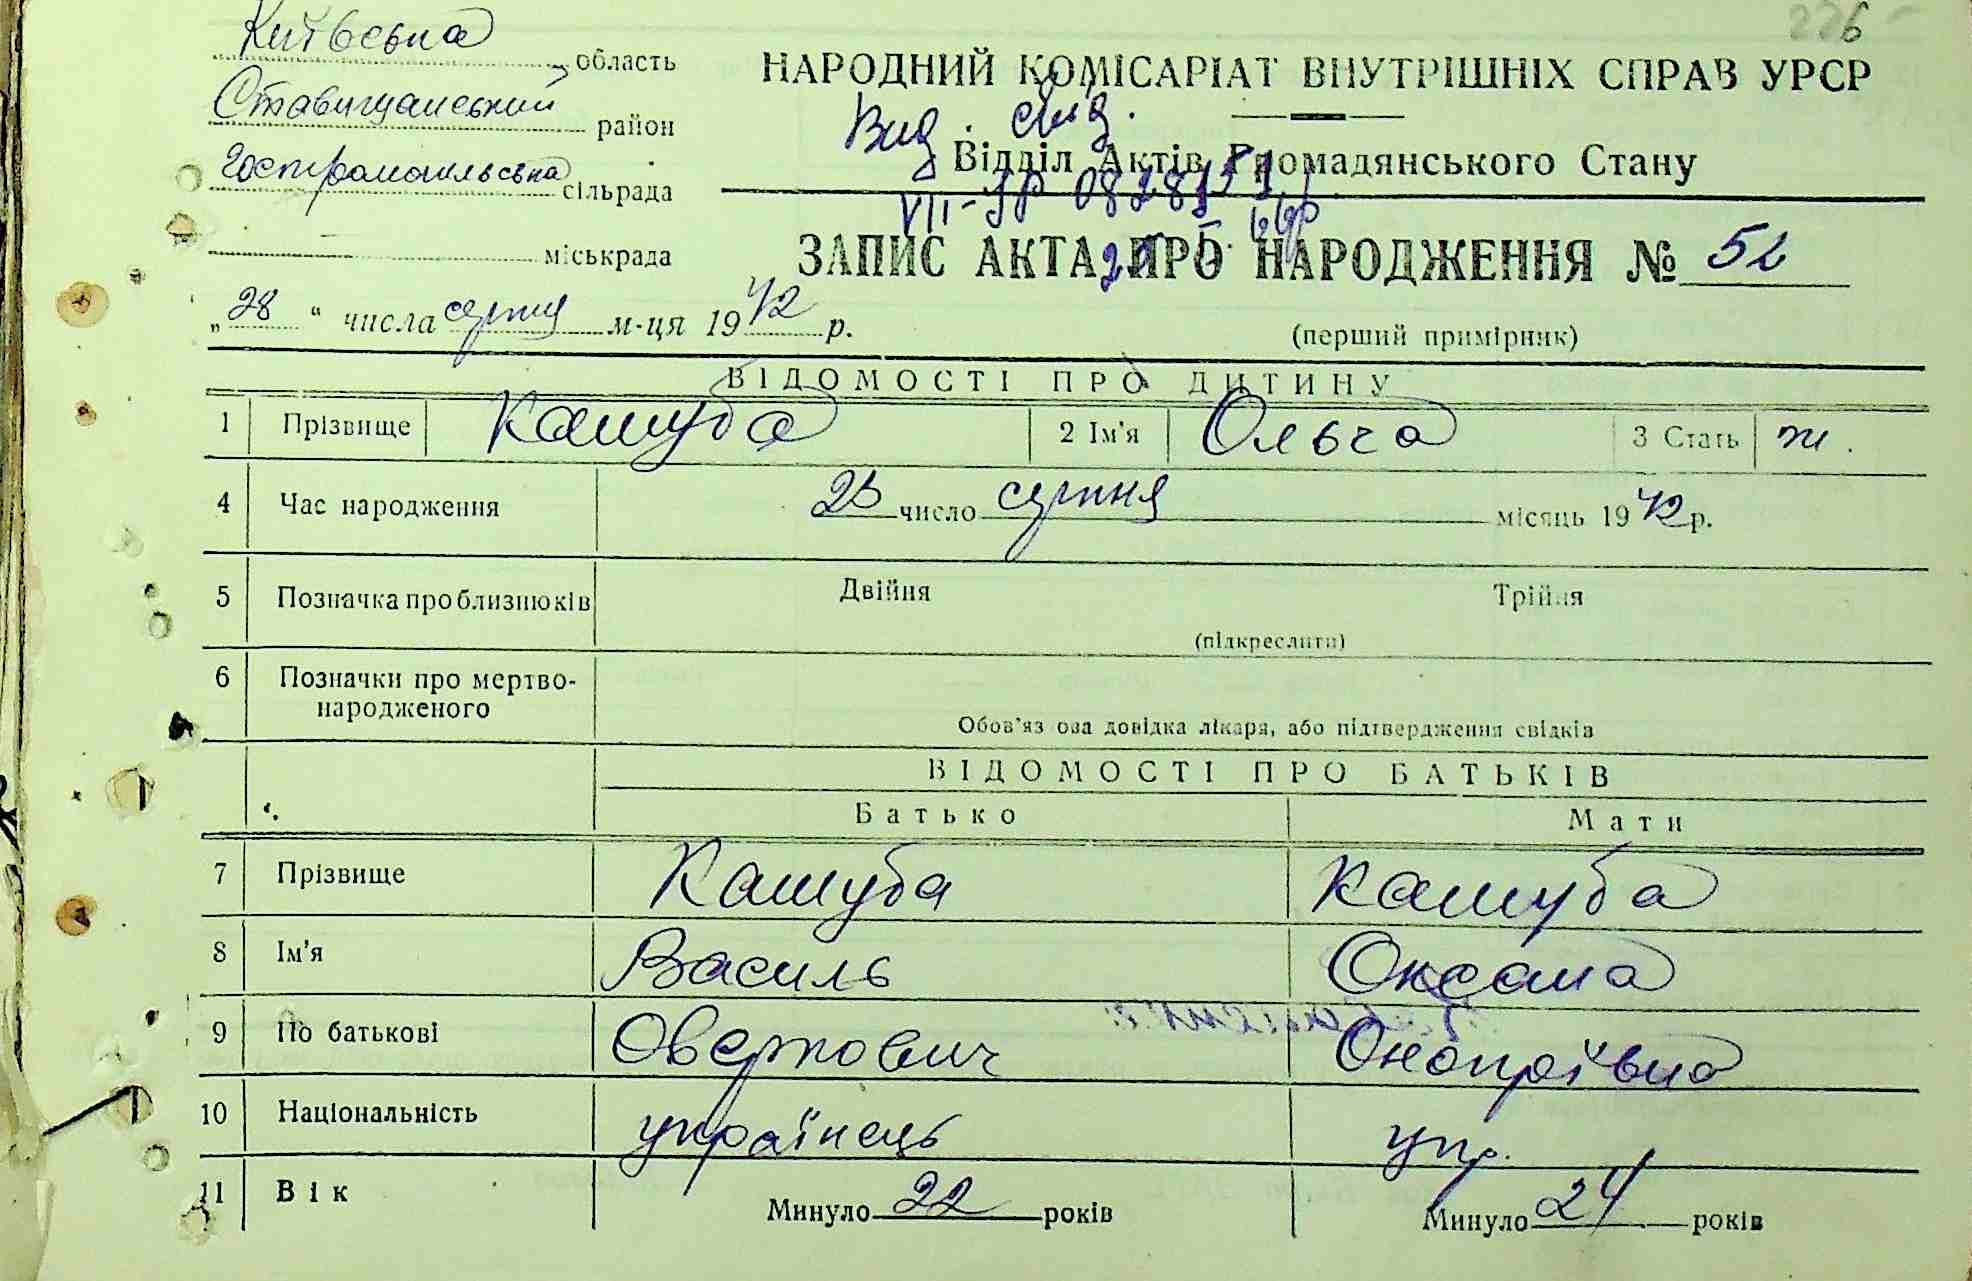 226
Київська область
Ставищанський район
Гостромогильська сільрада
міськрада
НАРОДНИЙ КОМІСАРІАТ ВНУТРІШНІХ СПРАВ УРСР
Вид. свід.
Відділ Актів Громадянського Стану
ЗАПИС АКТА ПРО НАРОДЖЕННЯ № 52
„28“ числа серпня м-ця 1942 р.
(перший примірник)
ВІДОМОСТІ ПРО ДИТИНУ
1 Прізвище Кашуба 2 Ім'я Ольга 3 Стать ж.
4 Час народження 23 число серпня місяць 1942 р.
5 Позначка про близнюків Двійня Трійня
(підкреслити)
6 Позначки про мертво-
народженого
Обов'язкова довідка лікаря, або підтвердження свідків
ВІДОМОСТІ ПРО БАТЬКІВ
Батько Мати
7 Прізвище Кашуба Кашуба
8 Ім'я Василь Оксана
9 По батькові Оверкович Онопріївна
10 Національність українець укр.
11 Вік Минуло 22 років Минуло 24 років